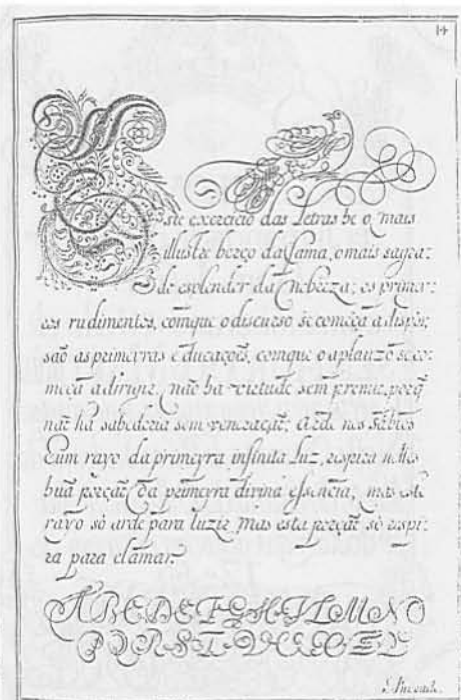 14
Este exercicio das Letras he o mais
illustre berço da Fama, o mais sagra:
do esplendor da Nobreza; os primei:
ros rudimentos, comque o discurso se começa a dispór,
são as primeyras educaçoẽs, comque o aplauzo se co:
meça a dirigir, não ha virtude sem premio, porq̃
naõ há sabedoria sem veneraçaõ; Arde nos Sábios
hum rayo da primeyra infinita Luz, respira nelles
huã porçaõ da primeyra divina essencia; mas este
rayo só arde para luzir, mas esta porçaõ só respi:
ra para clamar.
A B C D E F G H I L M N O
P Q R S T